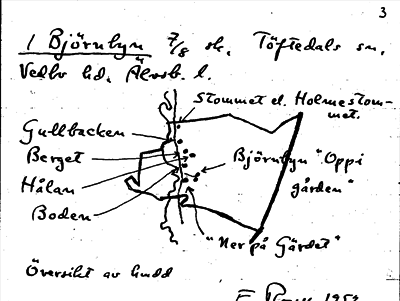 3
1 Björnbyn 7/8 sk. Töftedals sn.
Vedbo hd. Älvsb. l.
Stommet el. Holmestommet.
Gullbacken
Berget
Hålan
Boden
Björnbyn "Oppi
gården"
"Ner på Gärdet"
Översikt av